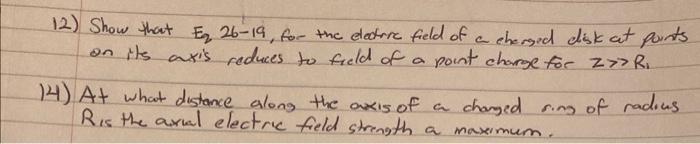 12) Show that Eq 26-19, for the electric field of a charged disk at points
on its axis reduces to field of a point charge for Z>>R.
14) At what distance along the axis of a charged ring of radius
R is the axial electric field strength a maximum.